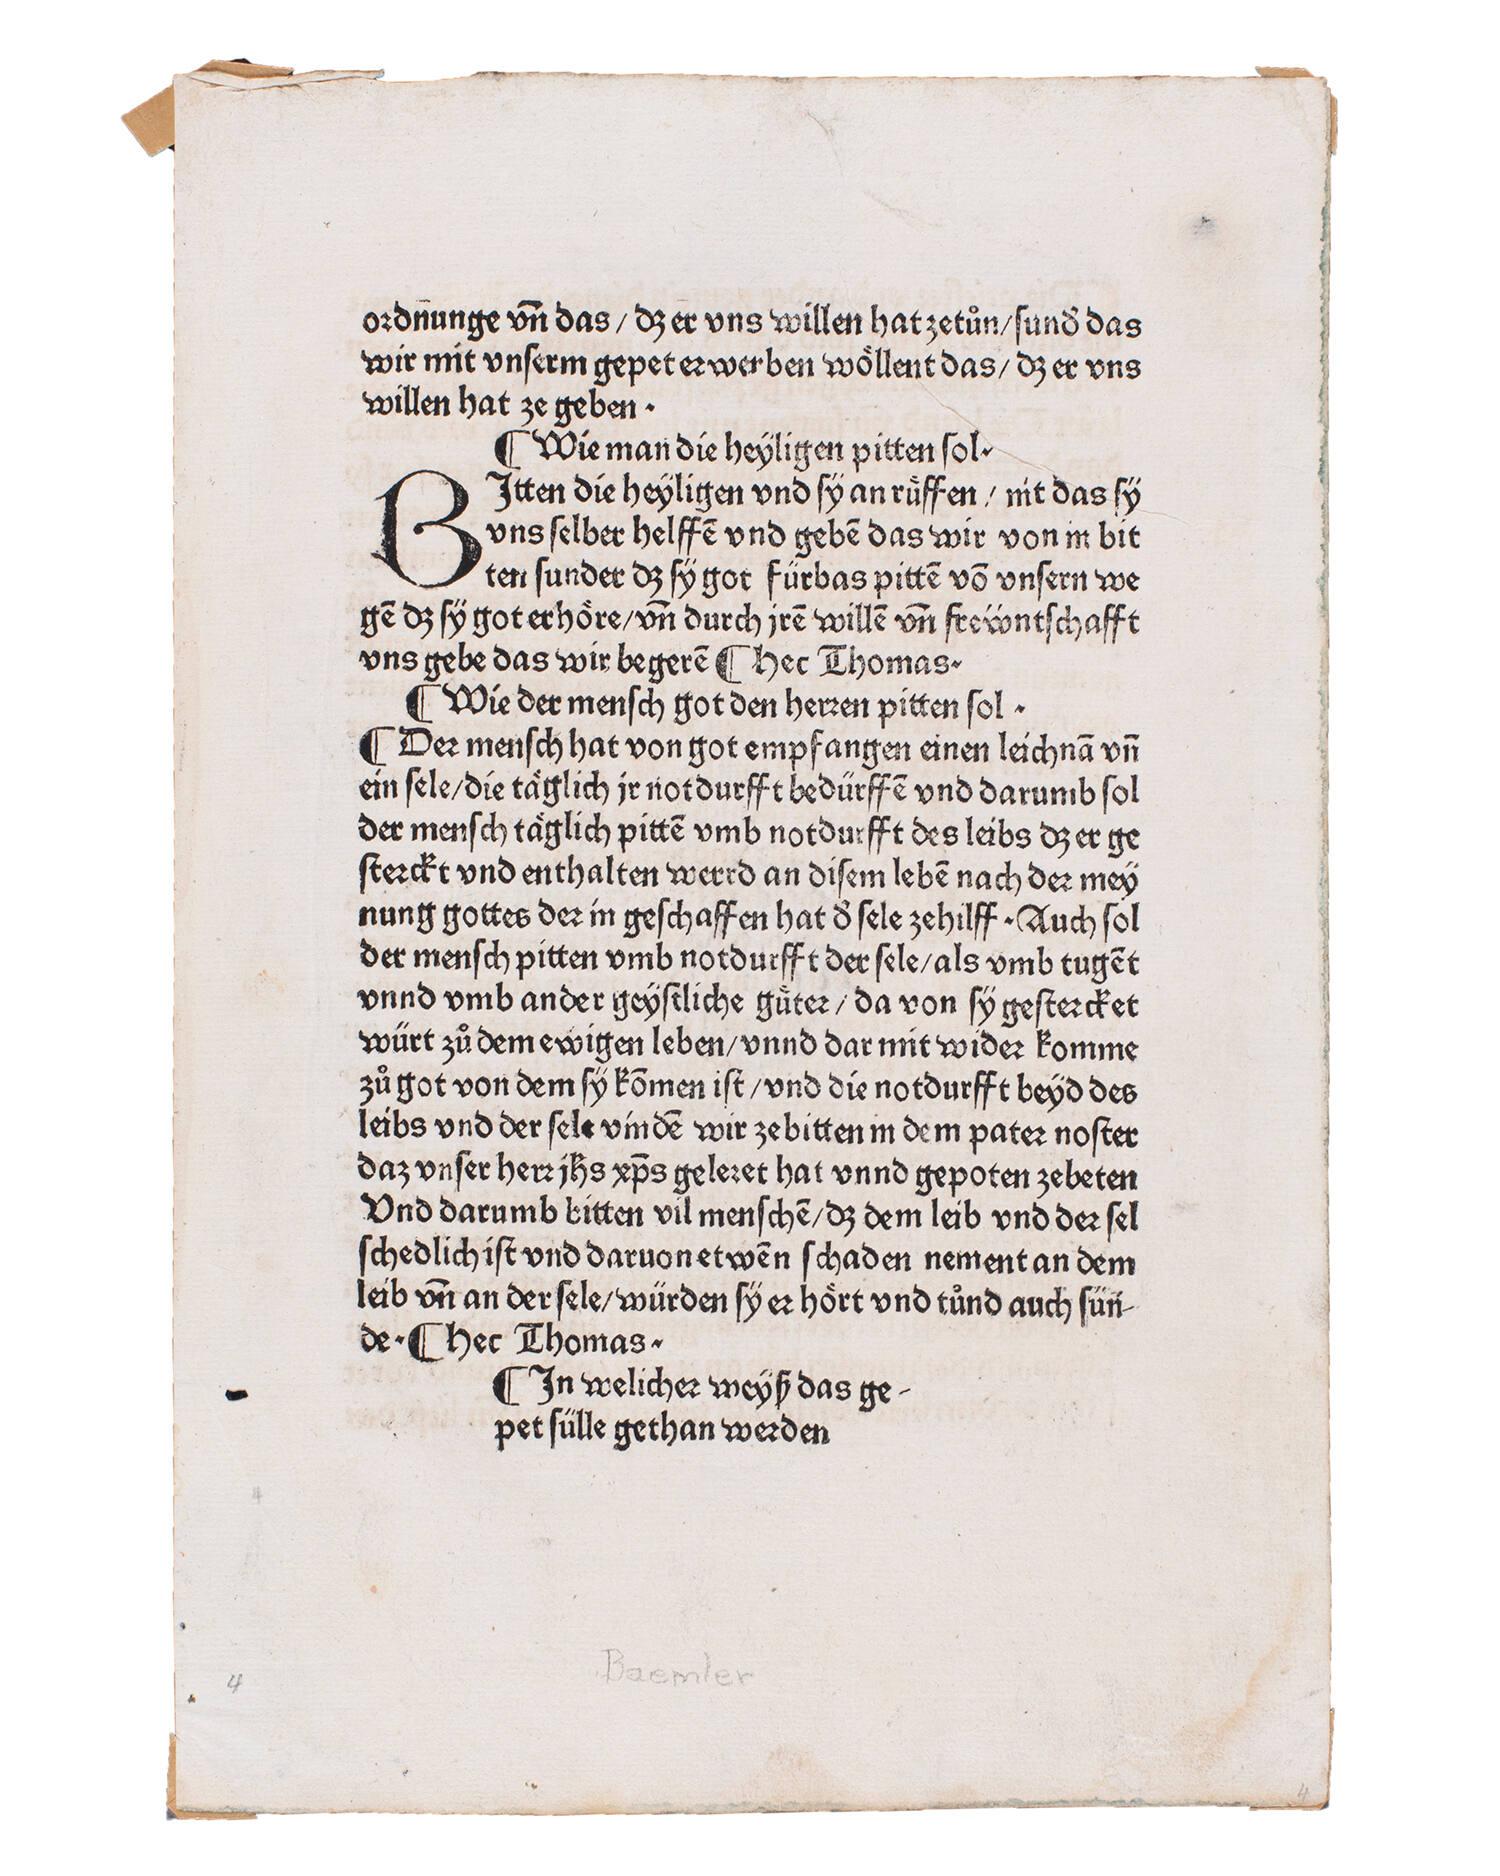 ordn̄unge vn̄ das / dz er vns willen hat zetůn / sunđ das
wir mit vnserm gepet erwerben wöllent das / dz er vns
willen hat ze geben ·
¶ Wie man die heÿligen pitten sol ·
BItten die heÿligen vnd sÿ an rüffen / nit das sÿ
vns selber helffē vnd gebē das wir von in bit
ten sunder dz sÿ got fürbas pittē vō vnsern we
gē dz sÿ got erhöre / vn̄ durch jrē willē vn̄ freẅntschafft
vns gebe das wir begerē ¶ hec Thomas ·
¶ Wie der mensch got den herren pitten sol ·
¶ Der mensch hat von got empfangen einen leichnā vn̄
ein sele / die täglich jr notdurfft bedürffē vnd darumb sol
der mensch täglich pittē vmb notdurfft des leibs dz er ge
sterckt vnd enthalten werrd an disem lebē nach der meÿ
nung gottes der in geschaffen hat đ sele zehilff · Auch sol
der mensch pitten vmb notdurfft der sele / als vmb tugēt
vnnd vmb ander geÿstliche güter / da von sÿ gestercket
würt zů dem ewigen leben / vnnd dar mit wider komme
zů got von dem sÿ kōmen ist / vnd die notdurfft beÿd des
leibs vnd der sele vindē wir ze bitten in dem pater noster
daz vnser herr jhs xp̄s geleret hat vnnd gepoten zebeten
Vnd darumb bitten vil menschē / dz dem leib vnd der sel
schedlich ist vnd daruon etwēn schaden nement an dem
leib vn̄ an der sele / würden sÿ er hört vnd tůnd auch sün-
de · ¶ hec Thomas ·
¶ In welicher weÿß das ge-
pet sülle gethan werden
4
Baemler
4
4